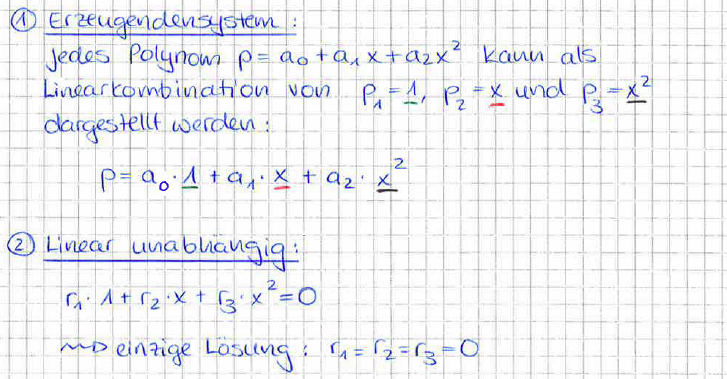 ① Erzeugendensystem:
jedes Polynom p = a₀ + a₁x + a₂x² kann als
Linearkombination von p₁ = 1, p₂ = x und p₃ = x²
dargestellt werden:
p = a₀ · 1 + a₁ · x + a₂ · x²
② Linear unabhängig:
r₁ · 1 + r₂ · x + r₃ · x² = 0
⇝ einzige Lösung: r₁ = r₂ = r₃ = 0